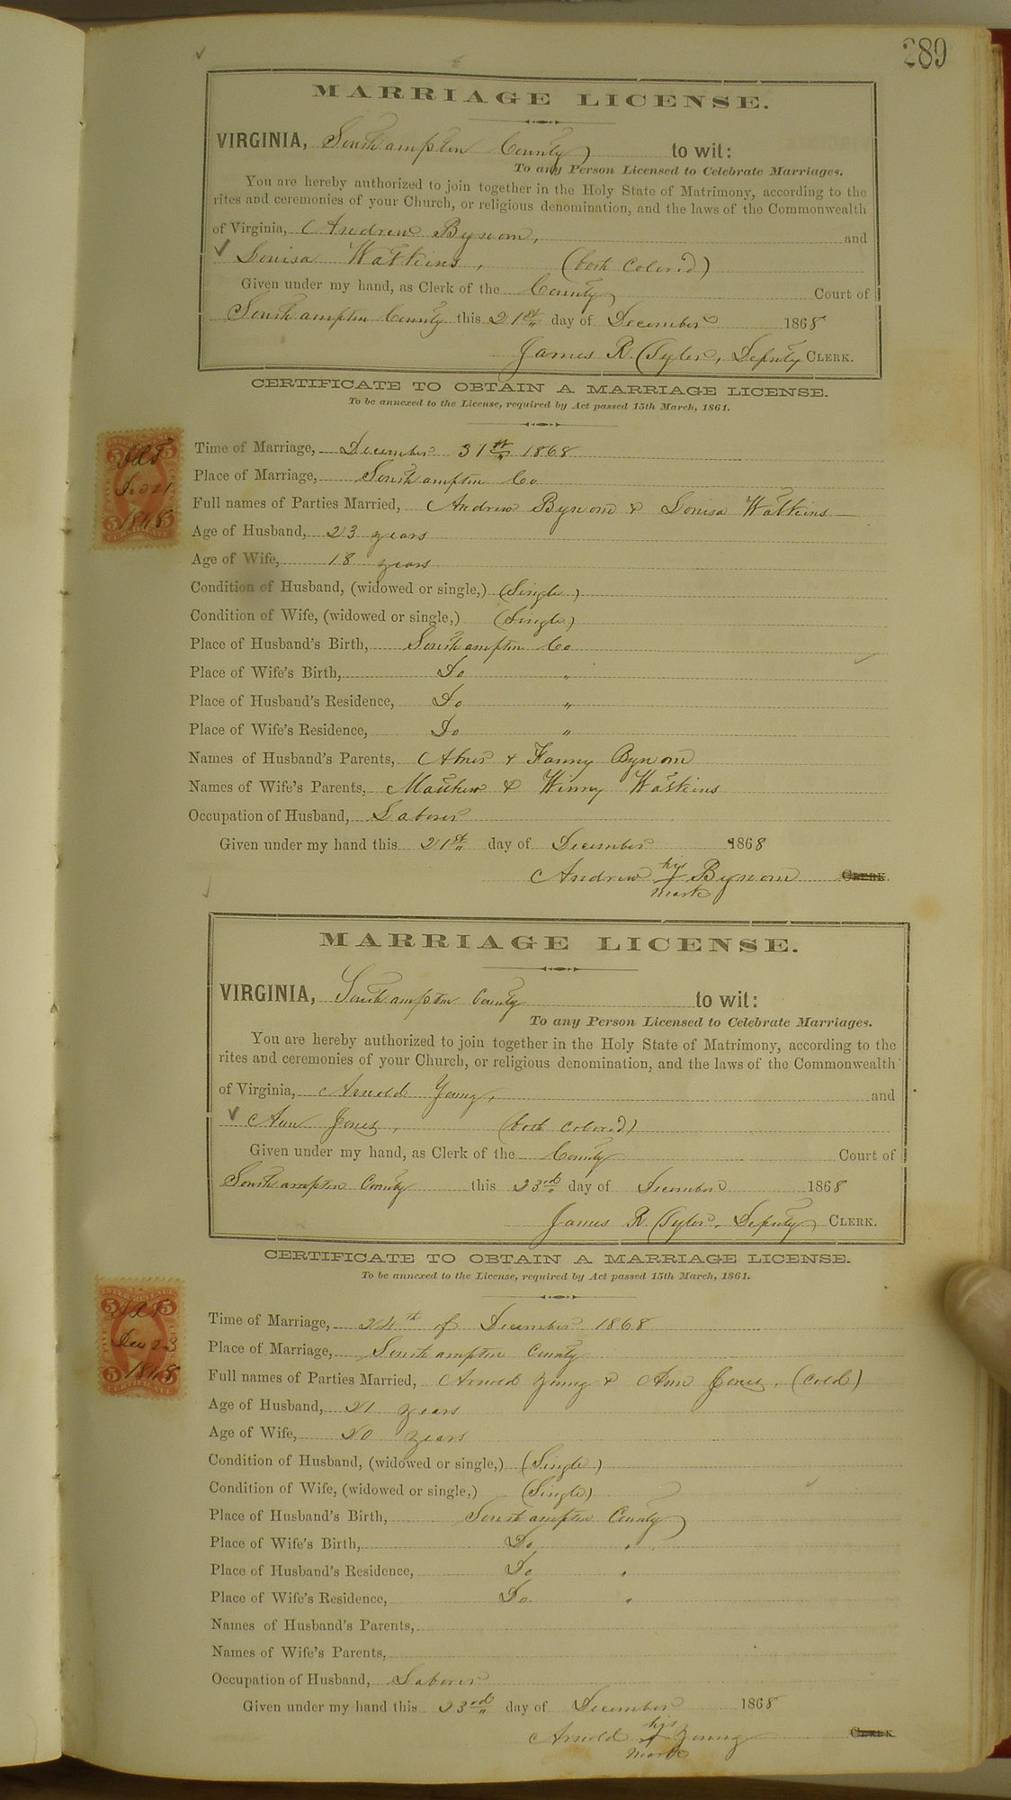 289
MARRIAGE LICENSE.
VIRGINIA, Southampton County to wit:
To any Person Licensed to Celebrate Marriages.
You are hereby authorized to join together in the Holy State of Matrimony, according to the
rites and ceremonies of your Church, or religious denomination, and the laws of the Commonwealth
of Virginia, Andrew Bynom, and
Louisa Watkins, (both colored)
Given under my hand, as Clerk of the County Court of
Southampton County this 21st day of December 1868
James R. Tyler, Deputy CLERK.
CERTIFICATE TO OBTAIN A MARRIAGE LICENSE.
To be annexed to the License, required by Act passed 15th March, 1861.
Time of Marriage, December 31st 1868
Place of Marriage, Southampton Co
Full names of Parties Married, Andrew Bynom & Louisa Watkins
Age of Husband, 23 years
Age of Wife, 18 years
Condition of Husband, (widowed or single,) (Single)
Condition of Wife, (widowed or single,) (Single)
Place of Husband's Birth, Southampton Co
Place of Wife's Birth, Do "
Place of Husband's Residence, Do "
Place of Wife's Residence, Do "
Names of Husband's Parents, & Fanny Bynom
Names of Wife's Parents, Matthew & Winny Watkins
Occupation of Husband, Laborer
Given under my hand this 21st day of December 1868
his
Andrew + Bynom CLERK.
mark
MARRIAGE LICENSE.
VIRGINIA, Southampton County to wit:
To any Person Licensed to Celebrate Marriages.
You are hereby authorized to join together in the Holy State of Matrimony, according to the
rites and ceremonies of your Church, or religious denomination, and the laws of the Commonwealth
of Virginia, Arnold Young, and
Ann Jones, (both colored)
Given under my hand, as Clerk of the County Court of
Southampton County this 23rd day of December 1868
James R. Tyler, Deputy CLERK.
CERTIFICATE TO OBTAIN A MARRIAGE LICENSE.
To be annexed to the License, required by Act passed 15th March, 1861.
Time of Marriage, 24th of December 1868
Place of Marriage, Southampton County
Full names of Parties Married, Arnold Young & Ann Jones, (Cold)
Age of Husband, 21 years
Age of Wife, 20 years
Condition of Husband, (widowed or single,) (Single)
Condition of Wife, (widowed or single,) (Single)
Place of Husband's Birth, Southampton County
Place of Wife's Birth, Do "
Place of Husband's Residence, Do "
Place of Wife's Residence, Do "
Names of Husband's Parents,
Names of Wife's Parents,
Occupation of Husband, Laborer
Given under my hand this 23rd day of December 1868
his
Arnold + Young CLERK
mark
5 5
Dec 23
1868